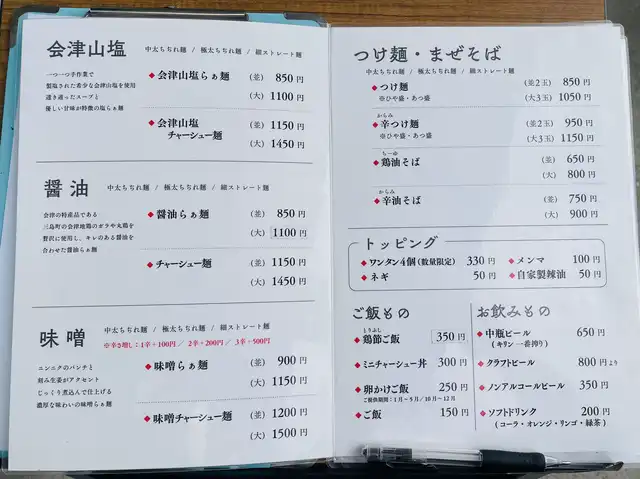 会津山塩
中太ちぢれ麺 / 極太ちぢれ麺 / 細ストレート麺
一つ一つ手作業で
製塩された希少な会津山塩を使用
透き通ったスープと
優しい甘味が特徴の塩らぁ麺
◆会津山塩らぁ麺 (並) 850円
(大) 1100円
◆会津山塩
チャーシュー麺 (並) 1150円
(大) 1450円
醤油
中太ちぢれ麺 / 極太ちぢれ麺 / 細ストレート麺
会津の特産品である
三島町の会津地鶏のガラや丸鶏を
贅沢に使用し、キレのある醤油を
合わせた醤油らぁ麺
◆醤油らぁ麺 (並) 850円
(大) 1100円
◆チャーシュー麺 (並) 1150円
(大) 1450円
味噌
中太ちぢれ麺 / 極太ちぢれ麺 / 細ストレート麺
※辛さ増し:1辛+100円/ 2辛+200円/ 3辛+300円
ニンニクのパンチと
刻み生姜がアクセント
じっくり煮込んで仕上げる
濃厚な味わいの味噌らぁ麺
◆味噌らぁ麺 (並) 900円
(大) 1150円
◆味噌チャーシュー麺 (並) 1200円
(大) 1500円
つけ麺・まぜそば
中太ちぢれ麺 / 極太ちぢれ麺 / 細ストレート麺
◆つけ麺 (並2玉) 850円
※ひや盛・あつ盛 (大3玉) 1050円
からみ
◆辛つけ麺 (並2玉) 950円
※ひや盛・あつ盛 (大3玉) 1150円
ちーゆ
◆鶏油そば (並) 650円
(大) 800円
からみ
◆辛油そば (並) 750円
(大) 900円
トッピング
◆ワンタン4個(数量限定) 330円
◆メンマ 100円
◆ネギ 50円
◆自家製辣油 50円
ご飯もの
とりぶし
◆鶏節ご飯 350円
◆ミニチャーシュー丼 300円
◆卵かけご飯 250円
ご提供期間:1月〜5月/10月〜12月
◆ご飯 150円
お飲みもの
◆中瓶ビール 650円
(キリン一番搾り)
◆クラフトビール 800円より
◆ノンアルコールビール 350円
◆ソフトドリンク 200円
(コーラ・オレンジ・リンゴ・緑茶)